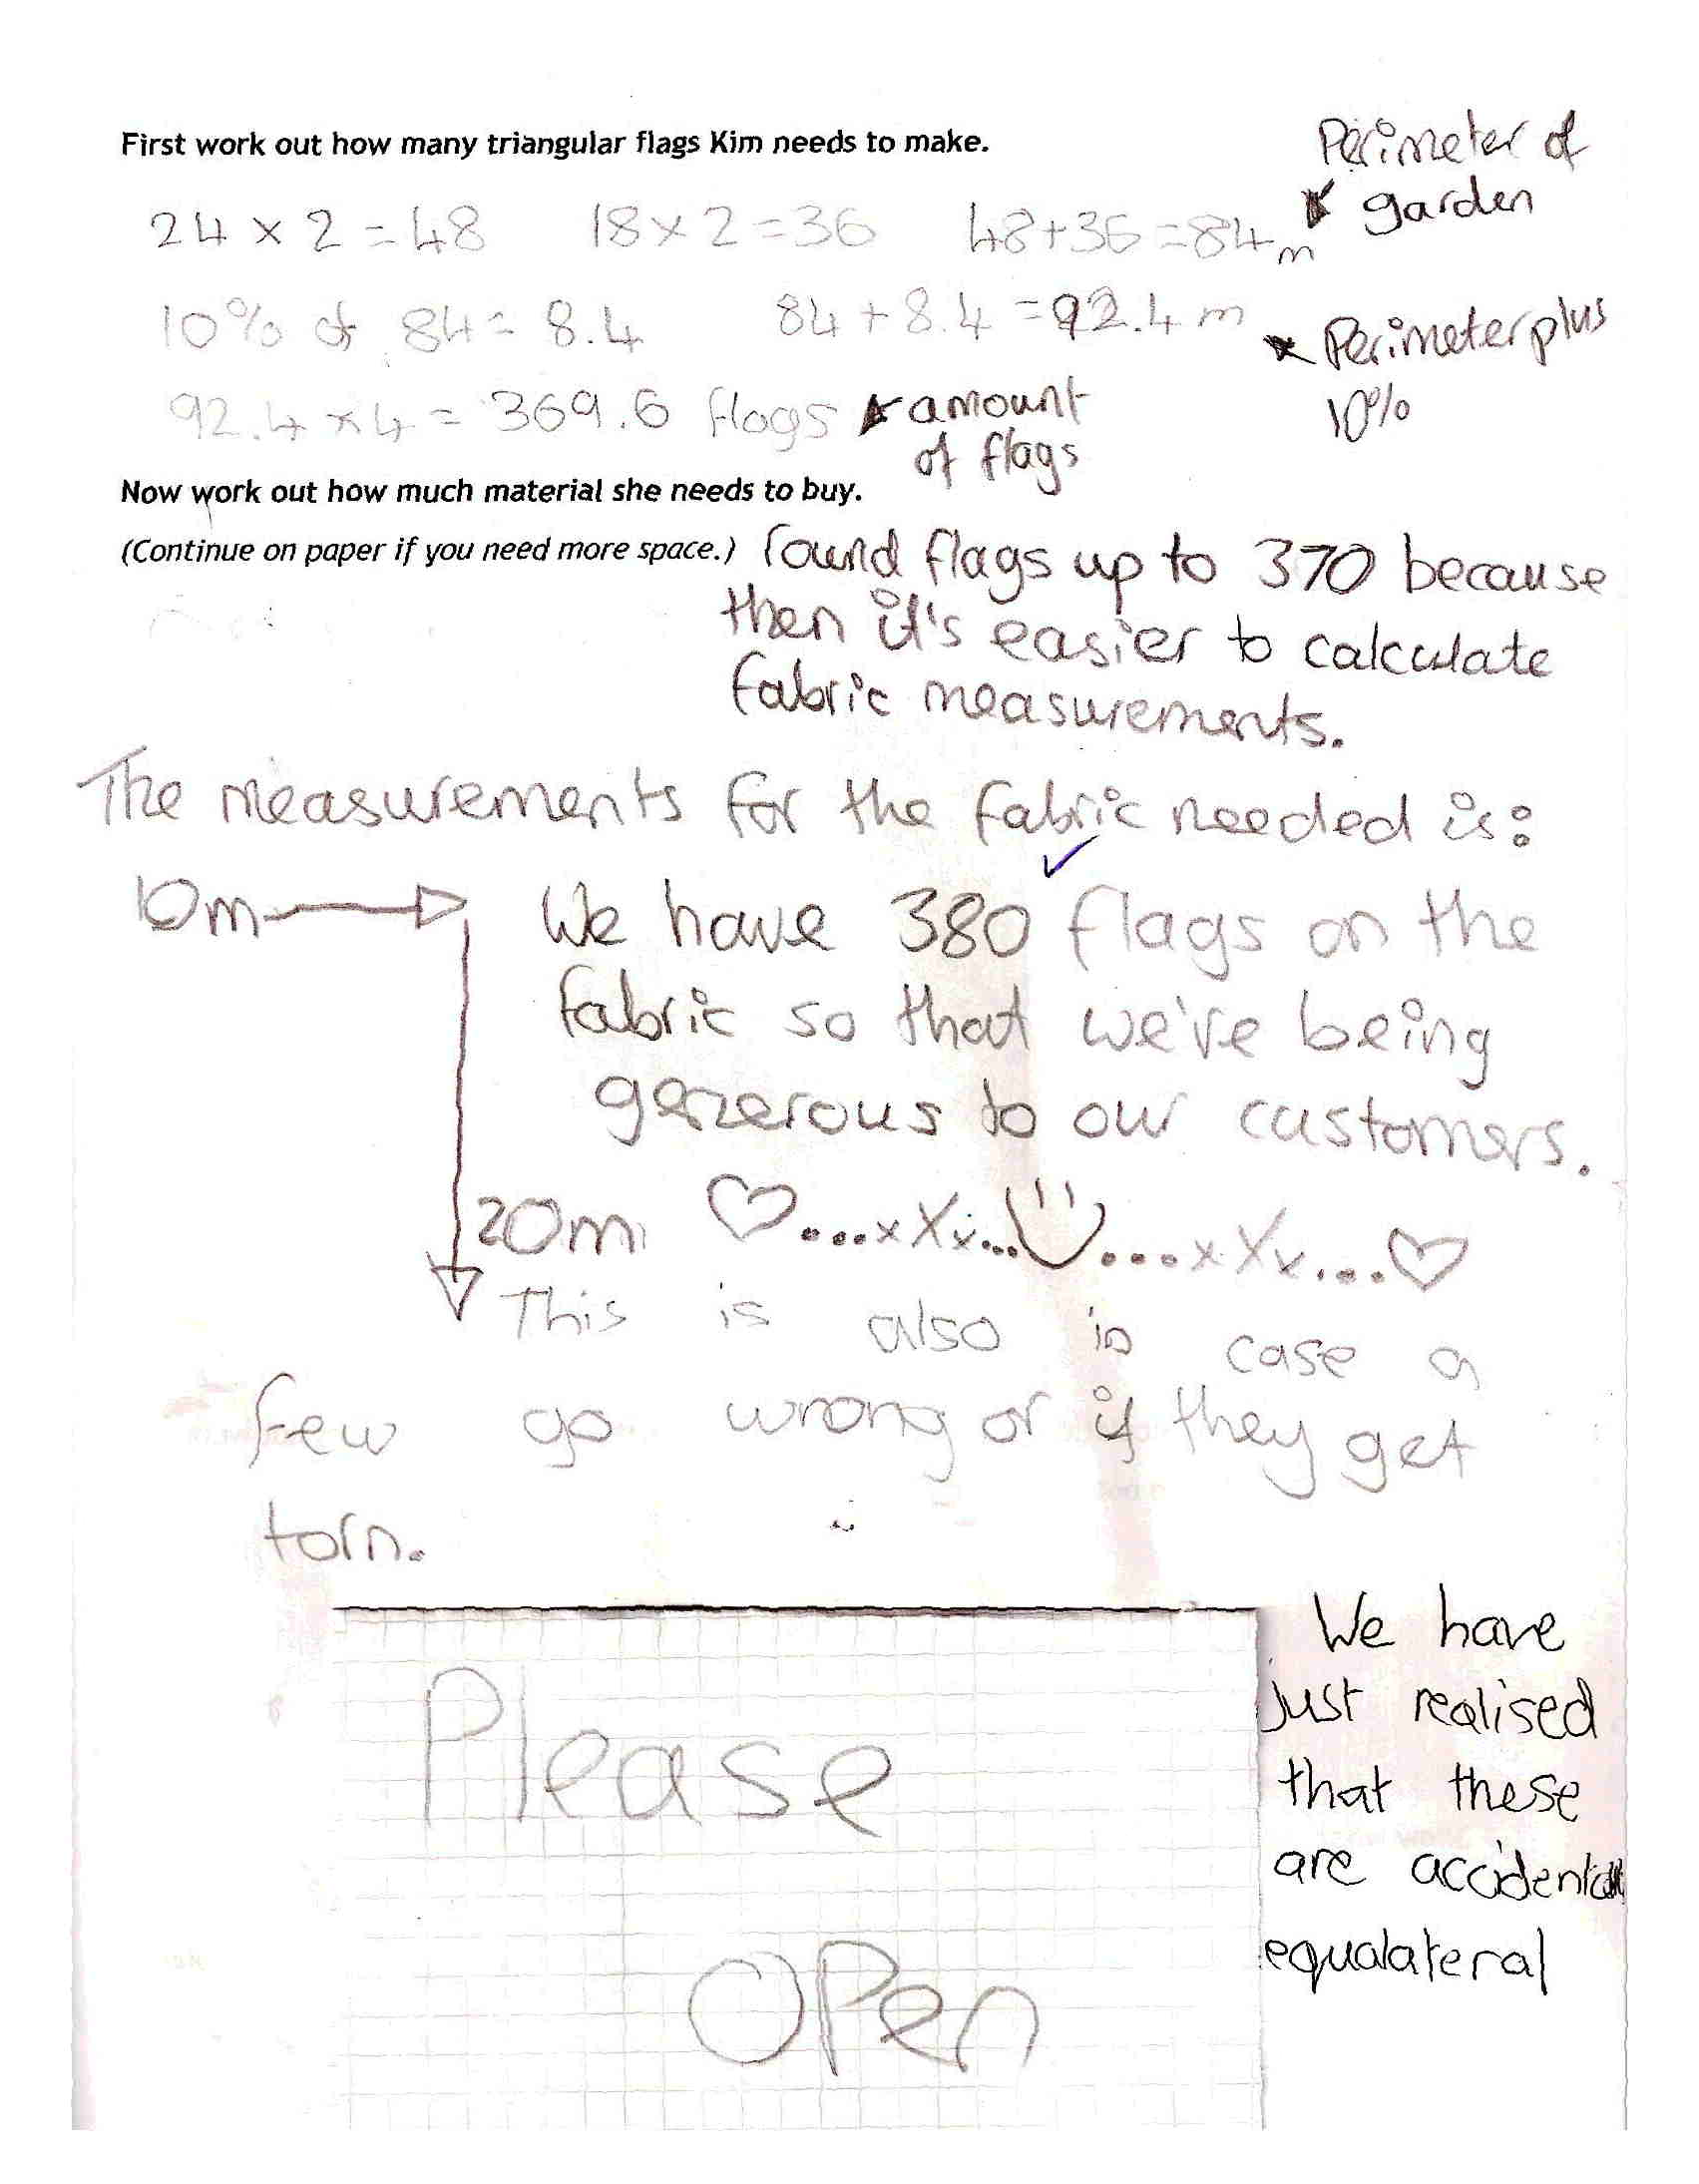 First work out how many triangular flags Kim needs to make.
Perimeter of
garden
24 × 2 = 48 18 × 2 = 36 48 + 36 = 84m
10% of 84 = 8.4 84 + 8.4 = 92.4 m
Perimeter plus
10%
92.4 × 4 = 369.6 flags
amount
of flags
Now work out how much material she needs to buy.
(Continue on paper if you need more space.)
round flags up to 370 because
then it's easier to calculate
fabric measurements.
The measurements for the fabric needed is:
10m
We have 380 flags on the
fabric so that we've being
generous to our customers.
20m ...xXx... ...xXx...
This is also in case a
few go wrong or if they get
torn.
Please
Open
We have
just realised
that these
are accidentall
equalateral